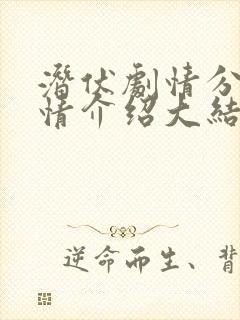 潛伏劇情分
情介紹大結
逆命而生、背